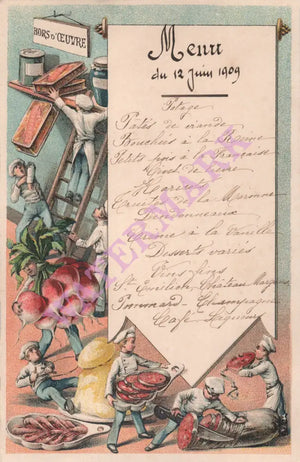 HORS-D'ŒUVRE
Menu
du 12 Juin 1909
Potage
Pâtés de viande
Bouchées à la Reine
Petits pois à la Française
Haricots
à la
Pintonneaux
Crème à la Vanille
Desserts variés
Vins fins
St Emilion - Château Margaux
Pommard - Champagne
Café Liqueurs